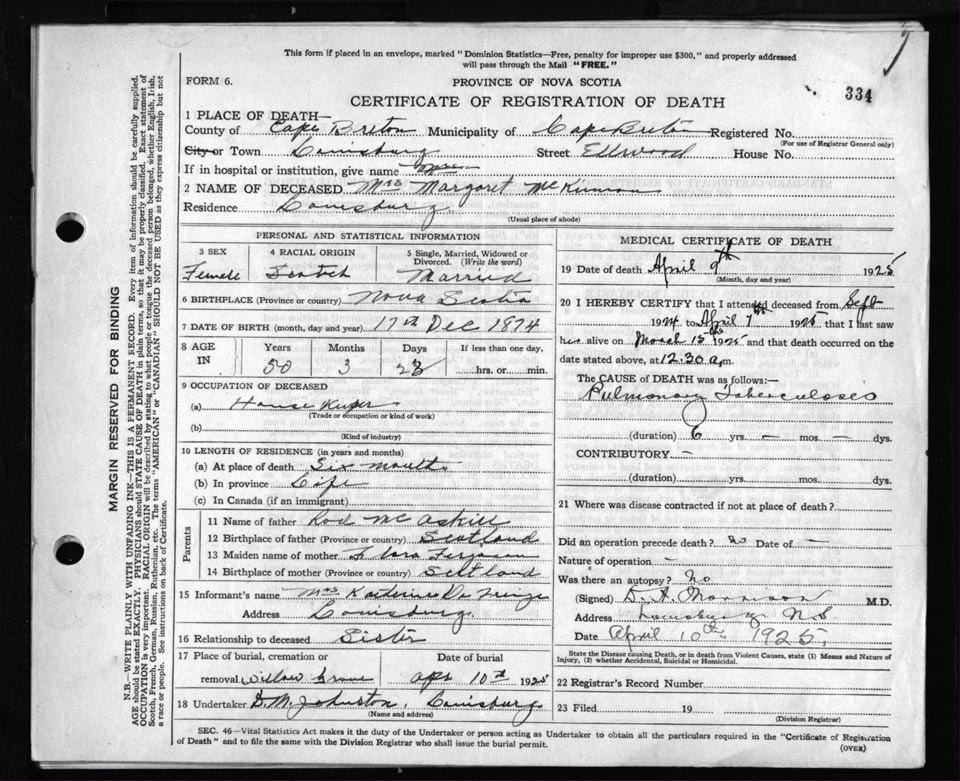 This form if placed in an envelope, marked "Dominion Statistics—Free, penalty for improper use $300," and properly addressed
will pass through the Mail "FREE."
FORM 6.
PROVINCE OF NOVA SCOTIA
334
CERTIFICATE OF REGISTRATION OF DEATH
1 PLACE OF DEATH—
County of Cape Breton Municipality of Cape Breton Registered No.
(For use of Registrar General only)
City or Town Louisburg Street Ellwood House No.
If in hospital or institution, give name
2 NAME OF DECEASED Mrs Margaret McKinnon
Residence Louisburg
(Usual place of abode)
PERSONAL AND STATISTICAL INFORMATION
3 SEX
Female
4 RACIAL ORIGIN
Scotch
5 Single, Married, Widowed or
Divorced. (Write the word)
Married
6 BIRTHPLACE (Province or country) Nova Scotia
7 DATE OF BIRTH (month, day and year) 17th Dec 1874
8 AGE
IN
Years Months Days If less than one day,
50 3 23 hrs. or min.
9 OCCUPATION OF DECEASED
(a) House Keeper
(Trade or occupation or kind of work)
(b)
(Kind of industry)
10 LENGTH OF RESIDENCE (in years and months)
(a) At place of death Six months
(b) In province Life
(c) In Canada (if an immigrant)
Parents
11 Name of father Rod McAskill
12 Birthplace of father (Province or country) Scotland
13 Maiden name of mother Flora Ferguson
14 Birthplace of mother (Province or country) Scotland
15 Informant's name Mrs Katherine
Address Louisburg
16 Relationship to deceased Sister
17 Place of burial, cremation or Date of burial
removal Willow Grove Apr 10th 1925
18 Undertaker D. M. Johnston, Louisburg
(Name and address)
MEDICAL CERTIFICATE OF DEATH
19 Date of death April 9th 1925
(Month, day and year)
20 I HEREBY CERTIFY that I attended deceased from Sept
1924 to April 7th 1925 that I last saw
her alive on March 15th 1925 and that death occurred on the
date stated above, at 12:30 a.m.
The CAUSE OF DEATH was as follows:—
Pulmonary Tuberculosis
(duration) 6 yrs. — mos. — dys.
CONTRIBUTORY. —
(duration) yrs. mos. dys.
21 Where was disease contracted if not at place of death?
Did an operation precede death? No Date of —
Nature of operation —
Was there an autopsy? No
(Signed) D. A. Morrison M.D.
Address Louisburg N.S
Date April 10th 1925
State the Disease causing Death, or in death from Violent Causes, state (1) Means and Nature of
Injury, (2) whether Accidental, Suicidal or Homicidal.
22 Registrar's Record Number
23 Filed 19
(Division Registrar)
SEC. 46—Vital Statistics Act makes it the duty of the Undertaker or person acting as Undertaker to obtain all the particulars required in the "Certificate of Registration
of Death" and to file the same with the Division Registrar who shall issue the burial permit.
(OVER)
MARGIN RESERVED FOR BINDING
N.B.—WRITE PLAINLY WITH UNFADING INK—THIS IS A PERMANENT RECORD. Every item of information should be carefully supplied.
AGE should be stated EXACTLY. PHYSICIANS should STATE CAUSE OF DEATH in plain terms, so that it may be properly classified. Exact statement of
OCCUPATION is very important. RACIAL ORIGIN will be described by stating to what people or tongue the deceased person belonged, whether English, Irish,
Scotch, French, German, Russian, Ruthenian, etc. The terms "AMERICAN" or "CANADIAN" SHOULD NOT BE USED as they express citizenship but not
a race or people. See instructions on back of Certificate.